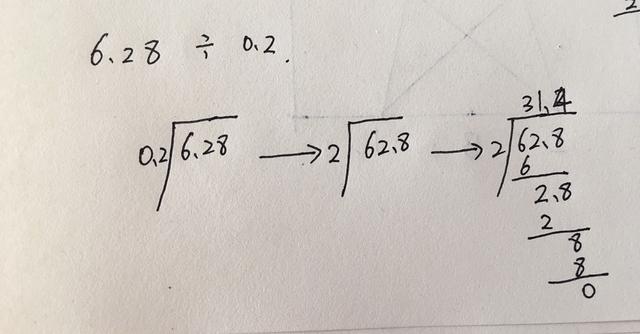 6.28 ÷ 0.2.
31.4
0.2 6.28 → 2 62.8 → 2 62.8
6
2.8
2
8
8
0